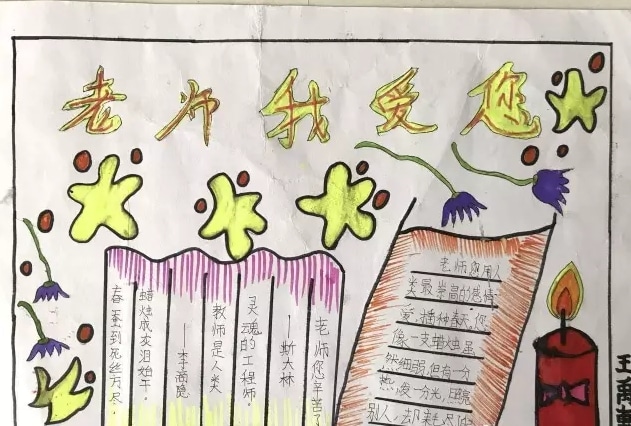 老师我爱您
春蚕到死丝方尽,
蜡烛成灰泪始干。
——李商隐
教师是人类
灵魂的工程师。
——斯大林
老师您辛苦了
老师您用人
类最崇高的感情
爱,播种春天,您
像一支蜡烛虽
然细弱,但有一分
热,发一分光,照亮
别人,却耗尽